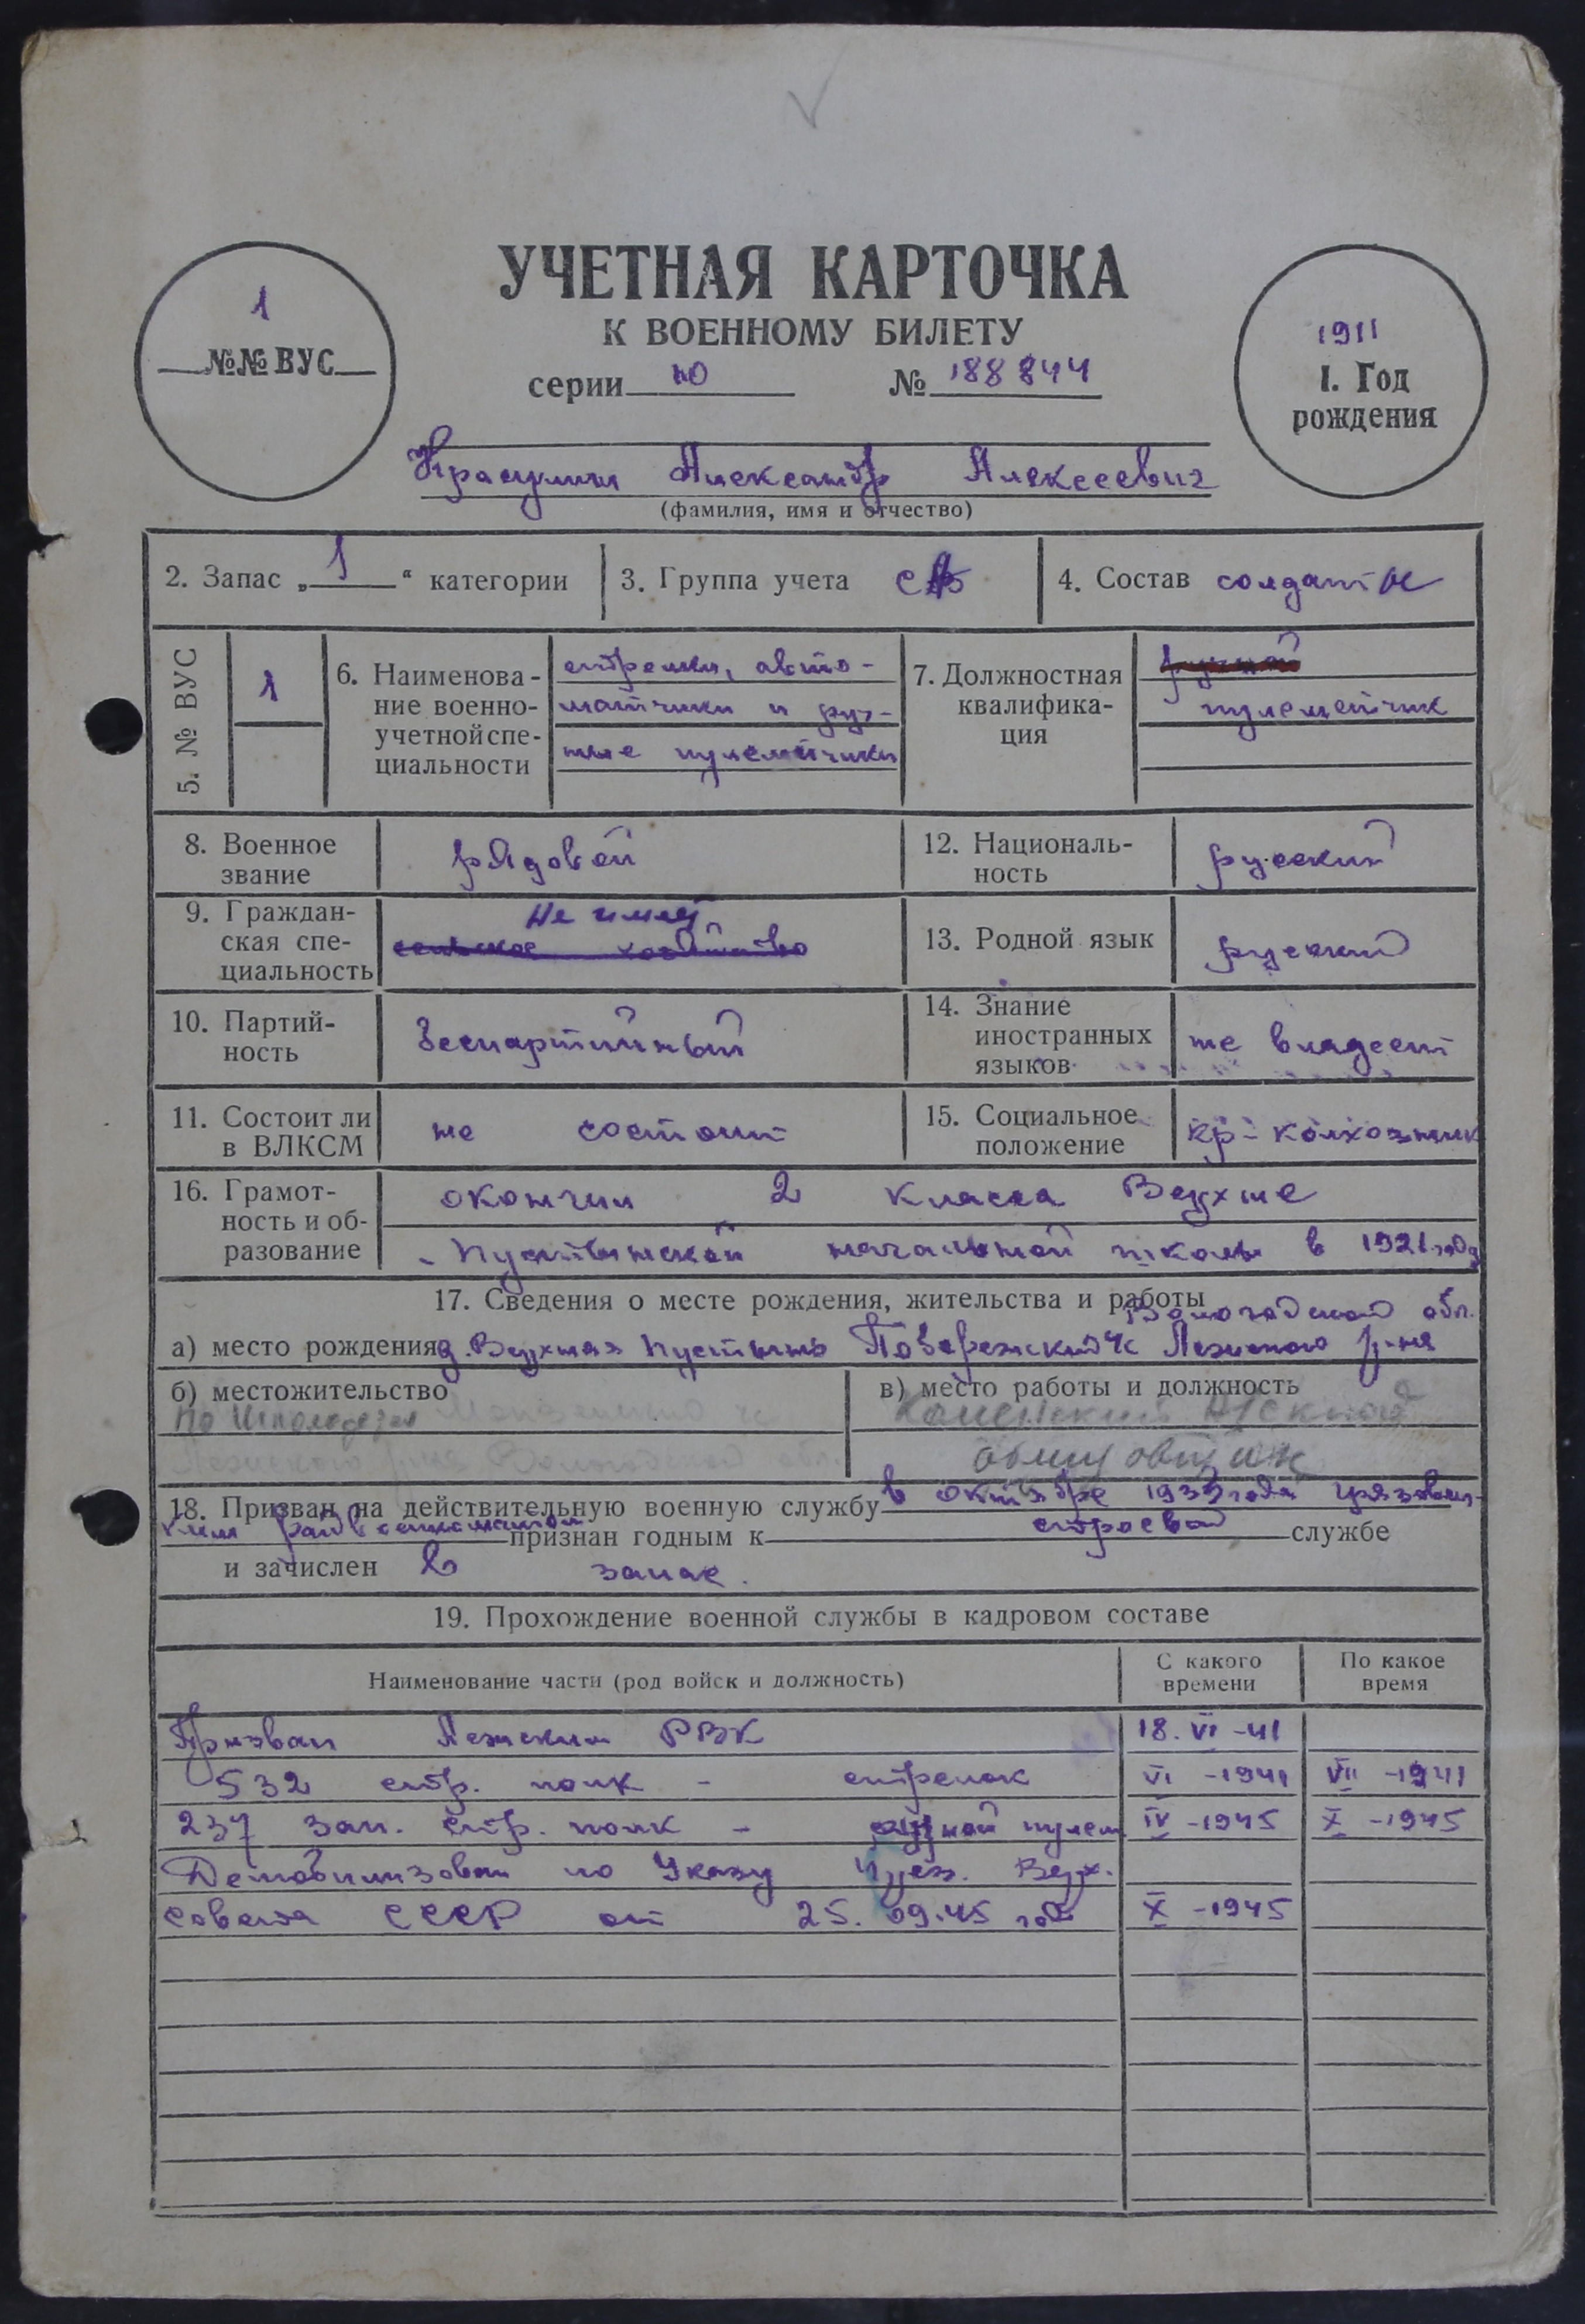 УЧЕТНАЯ КАРТОЧКА
К ВОЕННОМУ БИЛЕТУ
серии Ю № 188844
1
№№ ВУС
1911
1. Год
рождения
Александр Алексеевич
(фамилия, имя и отчество)
2. Запас „1“ категории
3. Группа учета СА
4. Состав солдаты
5. № ВУС
1
6. Наименова-
ние военно-
учетной спе-
циальности
стрелки, авто-
матчики и руч-
ные пулеметчики
7. Должностная
квалифика-
ция
ручной
пулеметчик
8. Военное
звание
рядовой
12. Националь-
ность
русский
9. Граждан-
ская спе-
циальность
Не имеет
сельское хозяйство
13. Родной язык
русский
10. Партий-
ность
беспартийный
14. Знание
иностранных
языков
не владеет
11. Состоит ли
в ВЛКСМ
не состоит
15. Социальное
положение
кр-колхозник
16. Грамот-
ность и об-
разование
окончил 2 класса Верхне
-Пустынской начальной школы в 1921 году
17. Сведения о месте рождения, жительства и работы
Вологодской обл.
а) место рождения д. Верхняя Пустынь Лежского р-на
б) местожительство
в) место работы и должность
18. Призван на действительную военную службу в октябре 1933 года Грязовец-
ким райвоенкоматом признан годным к строевой службе
и зачислен в запас.
19. Прохождение военной службы в кадровом составе
Наименование части (род войск и должность)
С какого
времени
По какое
время
Призван Лежским РВК 18. VI-41
532 стр. полк - стрелок VI-1941 VII-1941
237 зап. стр. полк - ручной пулем. IV-1945 X-1945
Демобилизован по Указу През. Верх.
Совета СССР от 25.09.45 года X-1945